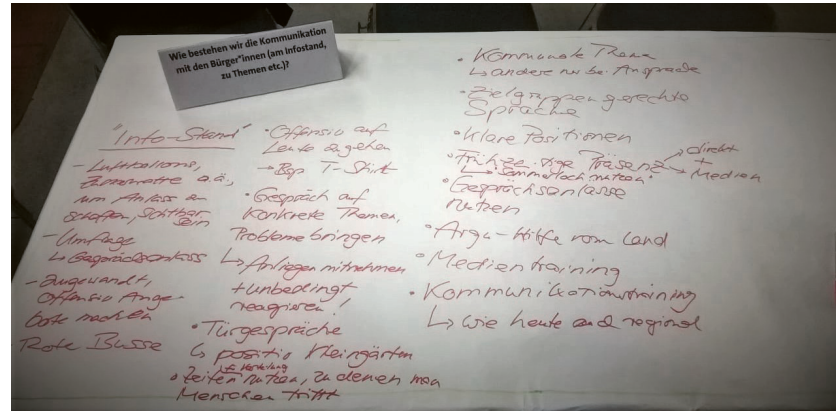 Wie bestehen wir die Kommunikation
mit den Bürger*innen (am Infostand,
zu Themen etc.)?
"Info-Stand"
- Luftballons,
o.ä.,
um Anlass zu
schaffen, Sichtbar
sein
- Umfrage
↳ Gesprächsanlass
- zugewandt,
offensiv Ange-
bote machen
Rote Busse
• Offensiv auf
Leute zugehen
→ Bsp T-Shirt
• Gespräch auf
konkrete Themen,
Probleme bringen
↳ Anliegen mitnehmen
+ unbedingt
reagieren!
• Türgespräche
↳ positiv Kleingärten
• Zeiten nutzen, zu denen man
Menschen trifft
• Kommunale Themen
↳ andere nur bei Ansprache
• Zielgruppengerechte
Sprache
• Klare Positionen
• Frühzeitige Präsenz → direkt
+
→ Medien
↳ "Sommerloch nutzen"
• Gesprächsanlässe
nutzen
• Argu-Hilfe vom Land
• Medientraining
• Kommunikationstraining
↳ wie heute auch regional